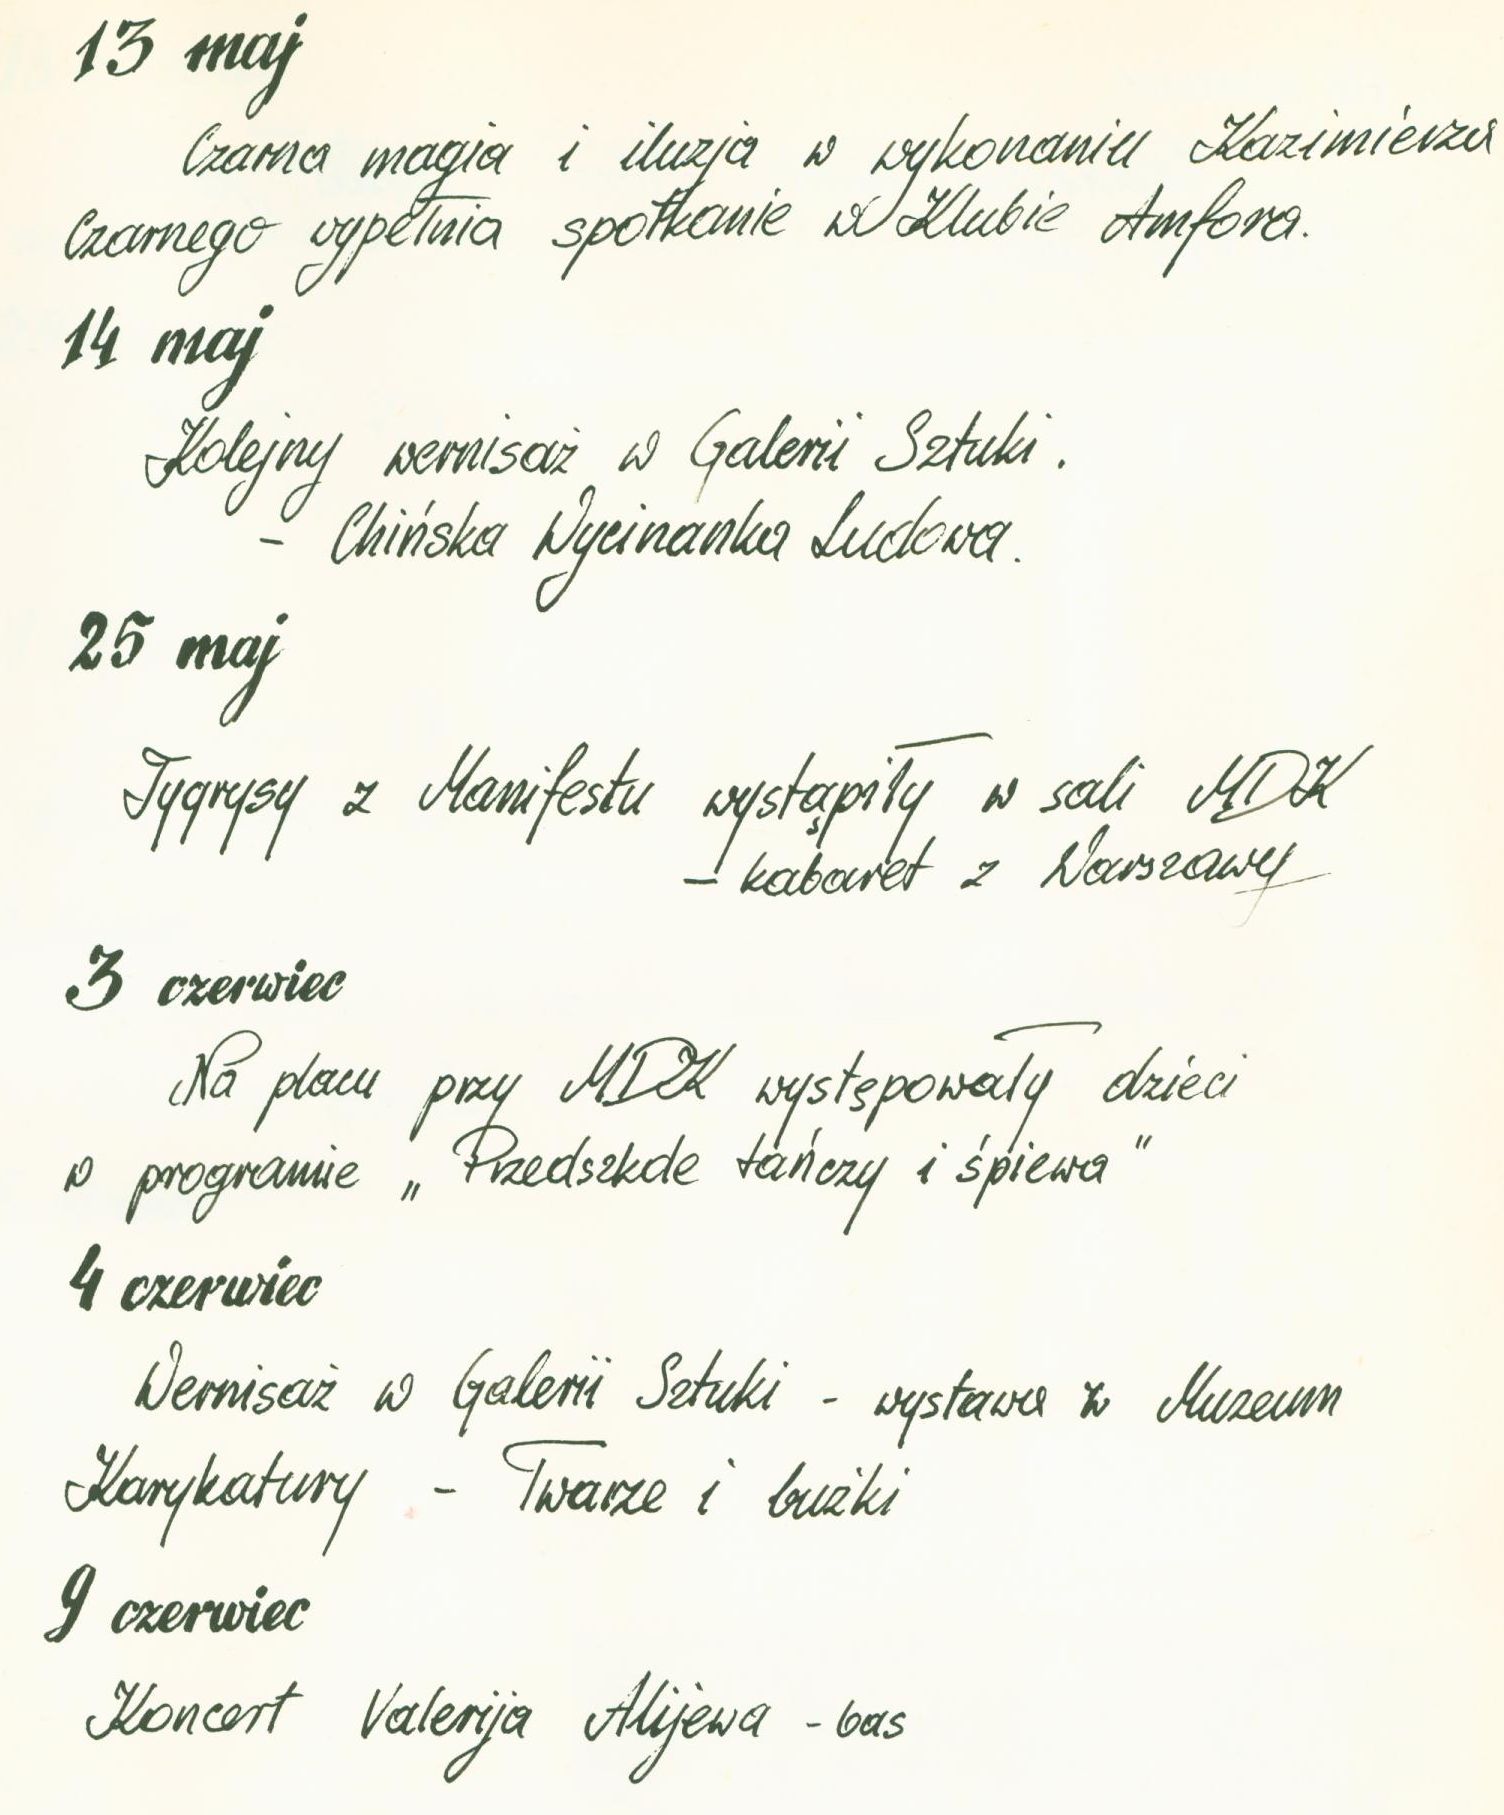 13 maj
Czarna magia i iluzja w wykonaniu Kazimierza
Czarnego wypełnia spotkanie w Klubie Amfora.
14 maj
Kolejny wernisaż w Galerii Sztuki.
- Chińska Wycinanka Ludowa.
25 maj
Tygrysy z Manifestu wystąpiły w sali MDK
- kabaret z Warszawy
3 czerwiec
Na placu przy MDK występowały dzieci
w programie „Przedszkole tańczy i śpiewa"
4 czerwiec
Wernisaż w Galerii Sztuki - wystawa z Muzeum
Karykatury - Twarze i buźki
9 czerwiec
Koncert Valerija Alijewa - bas